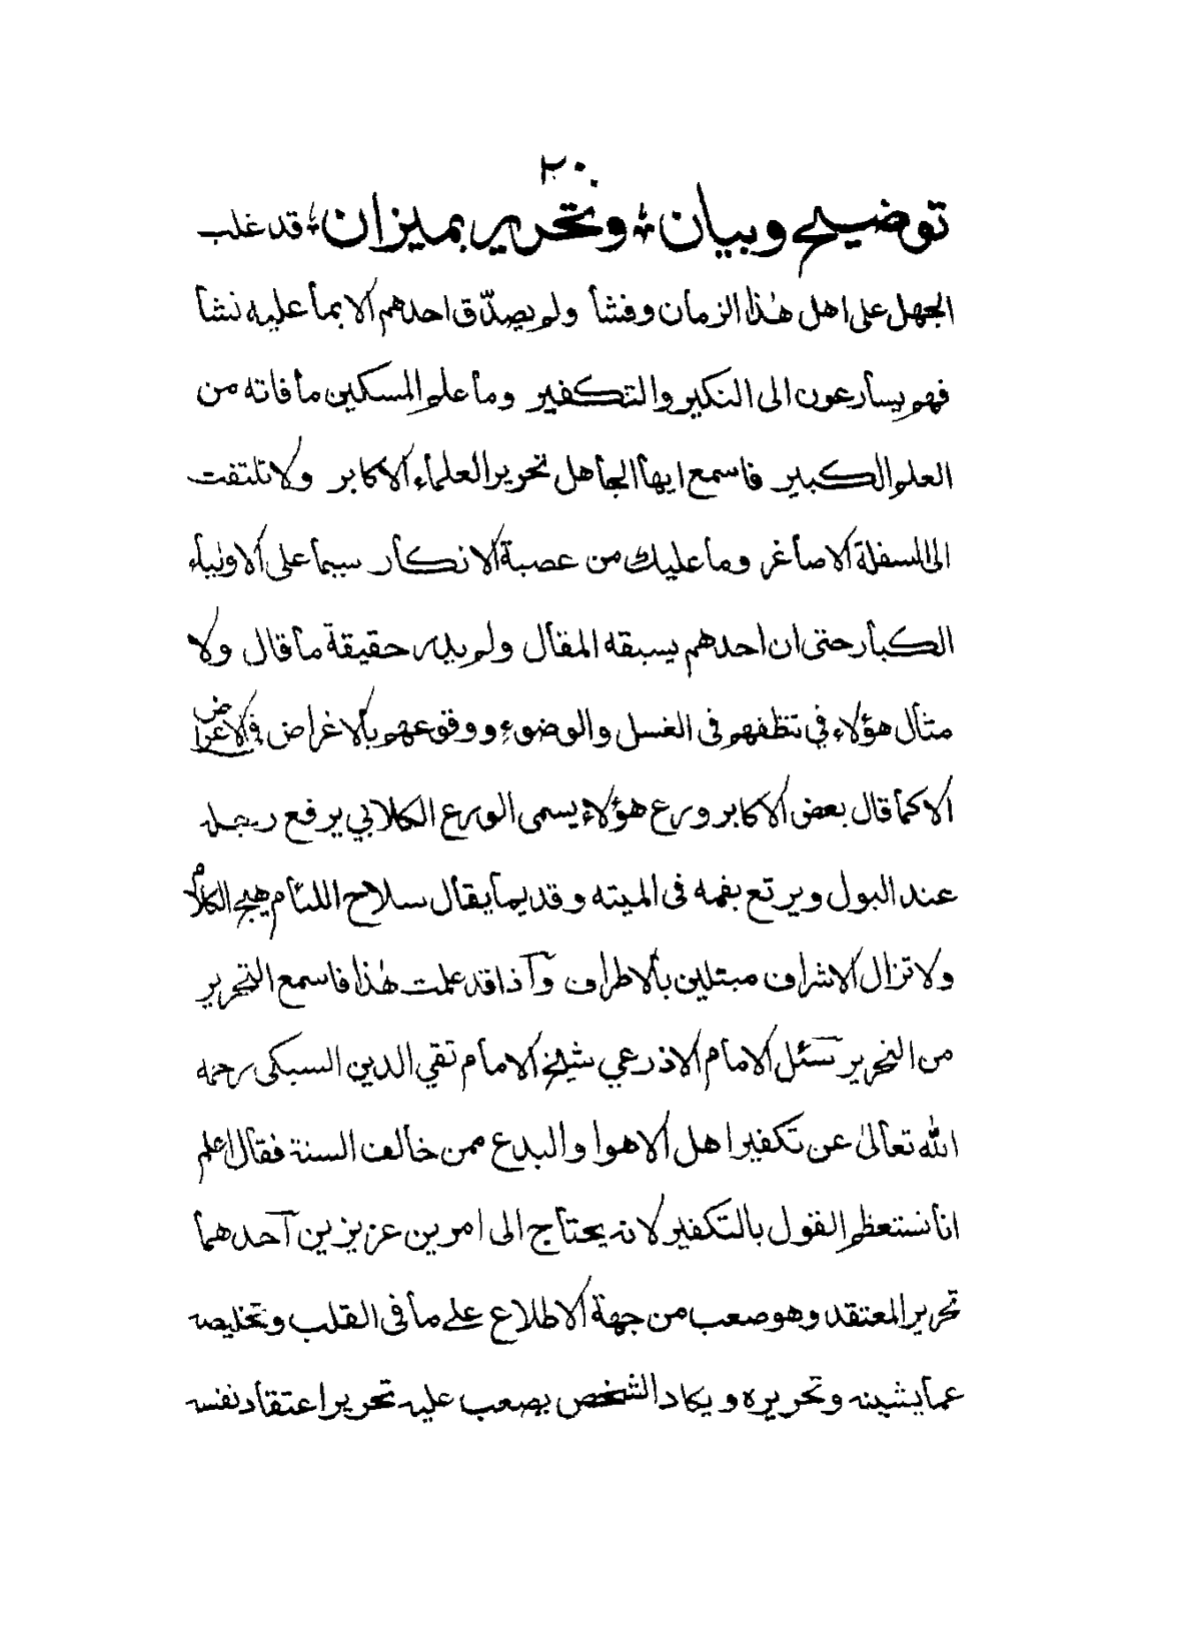 ٢٠
توضيح وبيان؛ وتحرير بميزان؛ قد غلب
الجهل على اهل هٰذا الزمان وفشأ ولم يصدّق احدهم الا بمأ عليه نشأ
فهم يسأرعون الى النكير والتكفير ومأ علم المسكين مأ فاته من
العلم الكبير فاسمع ايهأ الجأهل تحرير العلمأء الاكابر ولا تلتفت
الى السفلة الاصأغر ومأ عليك من عصبة الانكأر سيمأ على الاوليأء
الكبأر حتى ان احدهم يسبقه المقأل ولم يدر حقيقة مأ قال ولا
مثأل هؤلاء في تنظفهم فى الغسل والوضوء ووقوعهم بألاغراض فى الاعراض
الا كمأ قال بعض الاكابر ورع هؤلاء يسمى الورع الكلابي يرفع رجله
عند البول ويرتع بفمه فى الميته وقديمأ يقأل سلاح اللئأم هيج الكلأم
ولا تزال الاشراف مبتلين بألاطراف وآذا قد علمت هٰذا فاسمع التحرير
من النحرير سئل الامام الاذرعي شيخ الامأم تقي الدين السبكى رحمه
الله تعألىٰ عن تكفير اهل الاهوا والبدع ممن خألف السنة فقأل اعلم
انأ نستعظم القول بالتكفير لانه يحتأج الى امرين عزيزين آحدهمأ
تحرير المعتقد وهو صعب من جهة الاطلاع على مأ فى القلب وتخليصه
عمأ يشينه وتحريره ويكاد الشخص يصعب عليه تحرير اعتقأد نفسه